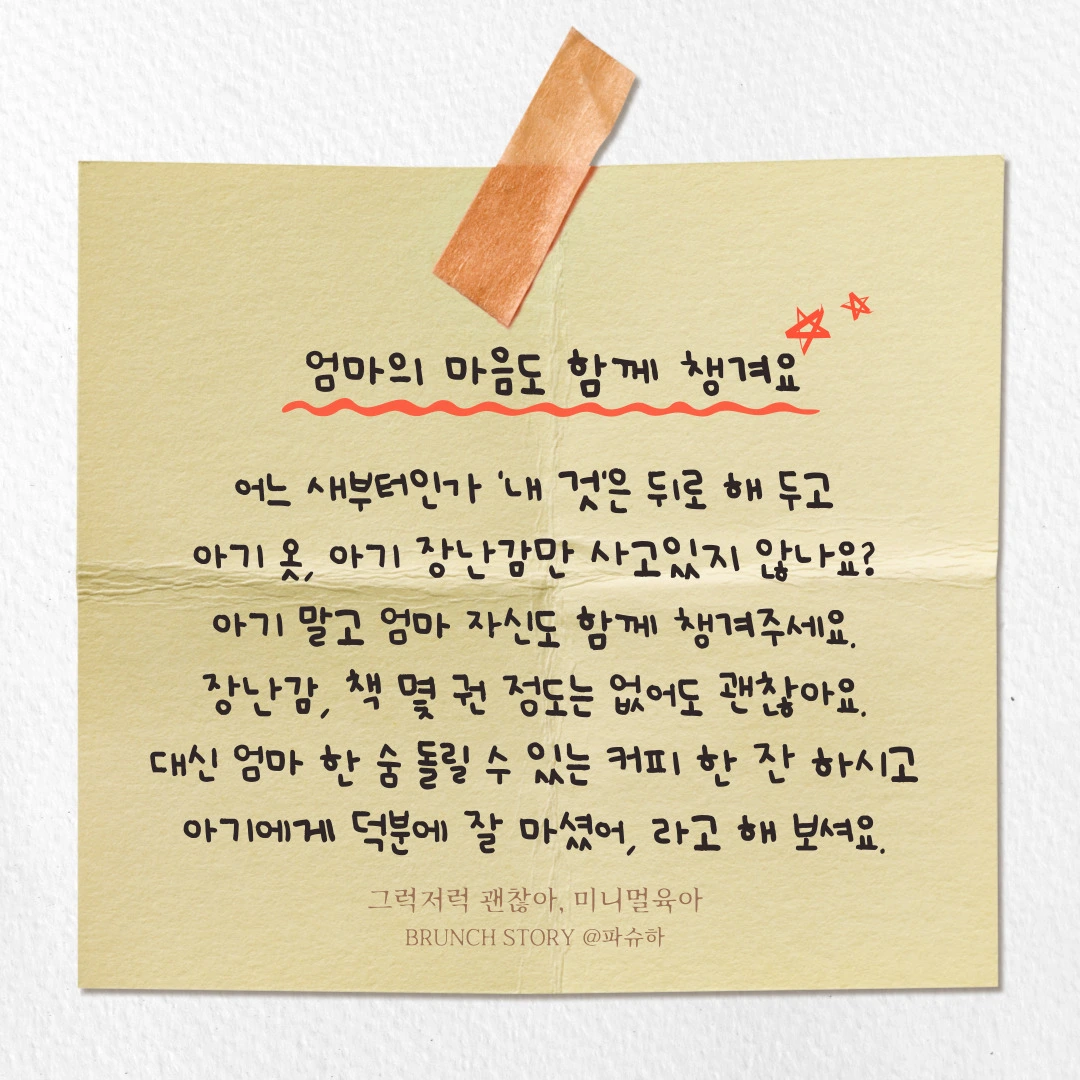 엄마의 마음도 함께 챙겨요
어느 새부터인가 '내 것'은 뒤로 해 두고
아기 옷, 아기 장난감만 사고있지 않나요?
아기 말고 엄마 자신도 함께 챙겨주세요.
장난감, 책 몇 권 정도는 없어도 괜찮아요.
대신 엄마 한 숨 돌릴 수 있는 커피 한 잔 하시고
아기에게 덕분에 잘 마셨어, 라고 해 보셔요.
그럭저럭 괜찮아, 미니멀육아
BRUNCH STORY @파슈하